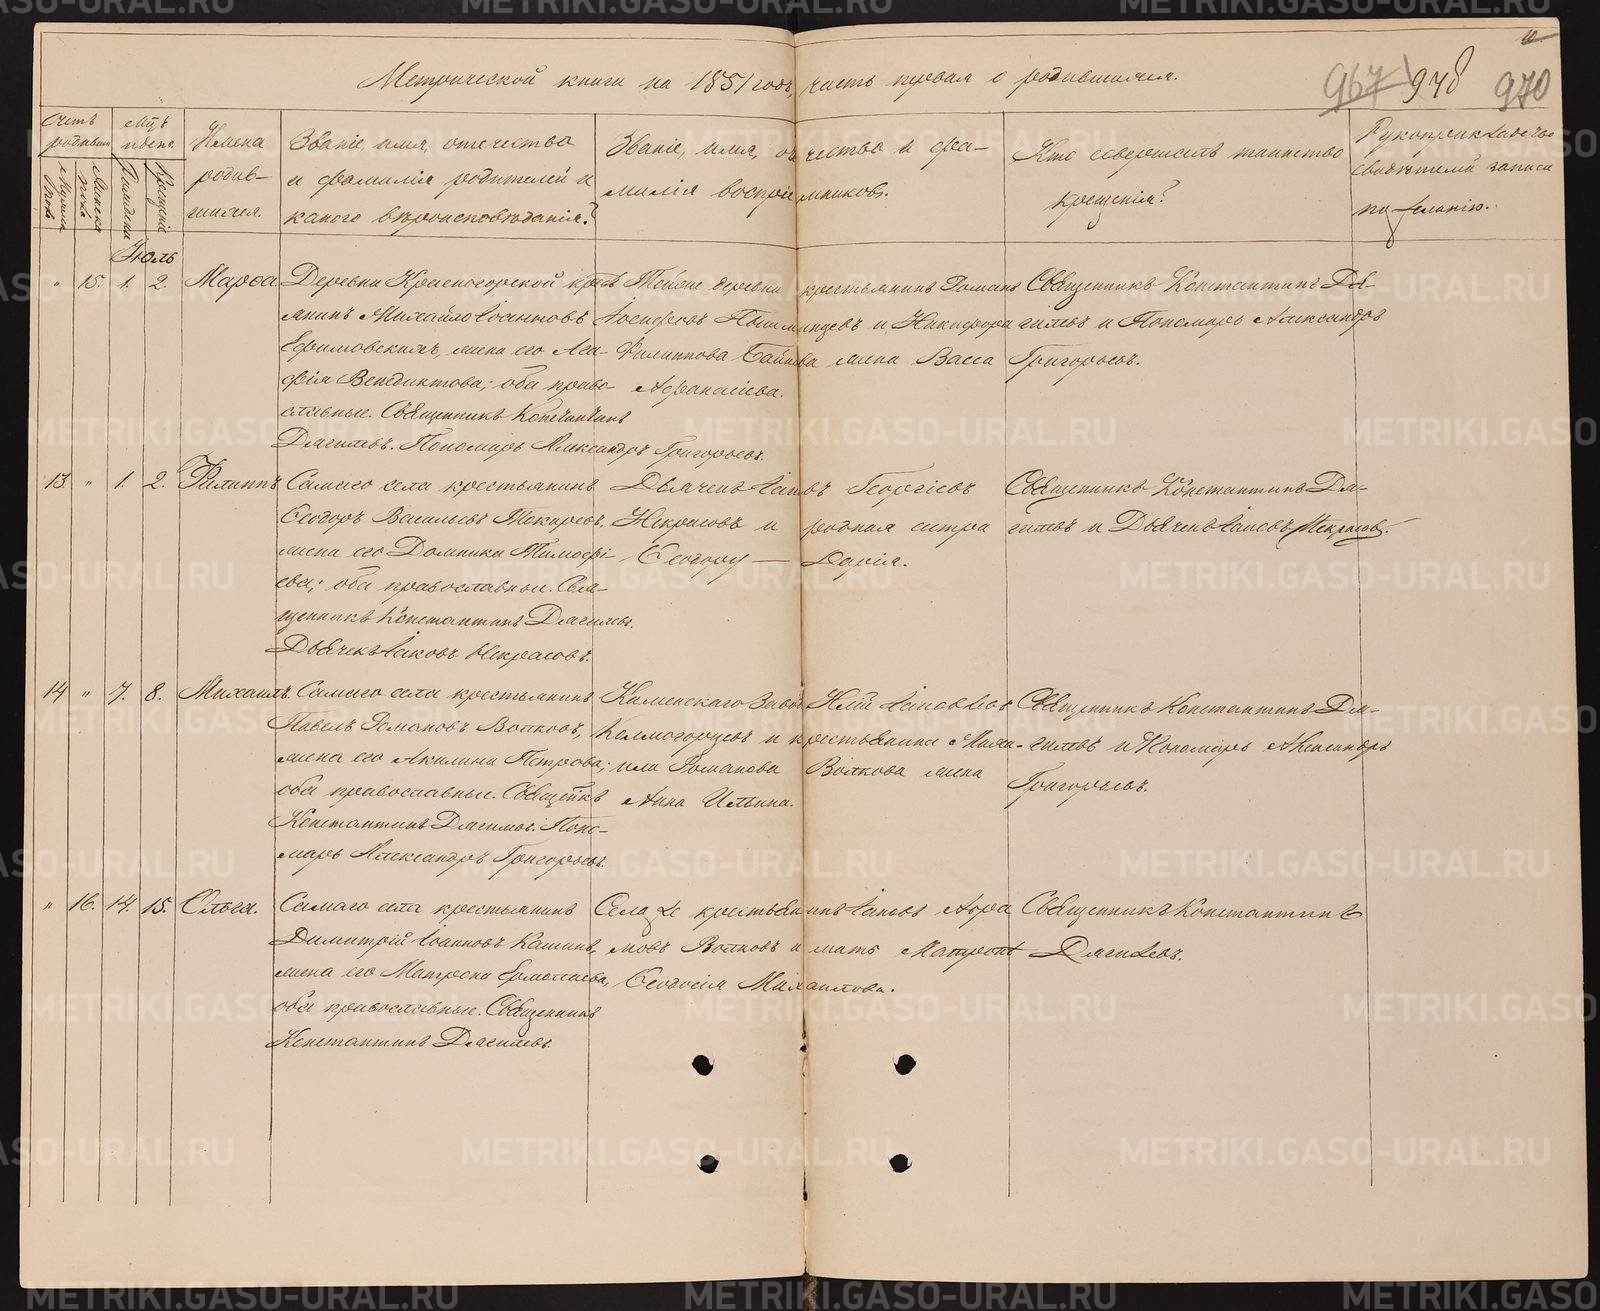 10
Метрической книги на 1851 годъ, часть первая о родившихся.
967 978 970
Счетъ родивш.
Мужеска пола
Женска пола
Мц҃ъ и день
Рожденія
Крещенія
Имена родив-
шихся.
Званіе, имя, отечество
и фамилія родителей и
какого вѣроисповѣданія?
Званіе, имя, отчество и фа-
милія воспріемниковъ.
Кто совершалъ таинство
крещенія?
Рукоприкладство
свидѣтелей записи
по желанію.
Іюль
" 15. 1. 2. Марѳа
Деревни Красногорской крест
янинъ Михайло Іоанновъ
Ефимовскихъ, жена его Ага-
фія Венедиктова; оба право
славные. Священникъ Константинъ
Дягилевъ. Пономарь Александръ Григорьевъ.
Тойже деревни крестьянинъ Романъ
Іосифовъ Пышминцевъ и Никифора
Филиппова жена Васса
Афанасіева.
Священникъ Константинъ Дя-
гилевъ и Пономарь Александръ
Григорьевъ.
13. " 1. 2. Филиппъ
Самаго села крестьянинъ
Ѳеодоръ Васильевъ Токаревъ,
жена его Домника Тимофѣ-
ева; оба православные. Свя-
щенникъ Константинъ Дягилевъ.
Дьячекъ Іаковъ Некрасовъ.
Дьячекъ Іаковъ Георгіевъ
Некрасовъ и родная сестра
Ѳеодору — Дарія.
Священникъ Константинъ Дя-
гилевъ и Дьячекъ Іаковъ Некрасовъ.
14 " 7. 8. Михаилъ.
Самаго села крестьянинъ
Павелъ Романовъ Волковъ,
жена его Акилина Петрова;
оба православные. Священникъ
Константинъ Дягилевъ. Поно-
марь Александръ Григорьевъ.
Каменскаго Завода Илій Іаковлевъ
Колмогорцевъ и крестьянина Миха-
ила Романова Волкова жена
Анна Ильина.
Священникъ Константинъ Дя-
гилевъ и Пономарь Александръ
Григорьевъ.
" 16. 14. 15. Ольга.
Самаго села крестьянинъ
Димитрій Іоанновъ Кашинъ,
жена его Матрона Ермолаева,
оба православные. Священникъ
Константинъ Дягилевъ.
Села же крестьянинъ Іаковъ Авра
мовъ Волковъ и мать Матроны
Ѳеодосія Михаилова.
Священникъ Константинъ
Дягилевъ.
METRIKI.GASO-URAL.RU